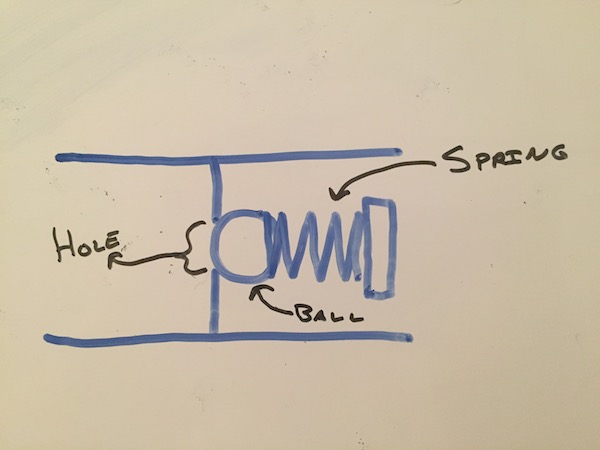 SPRING
HOLE
BALL